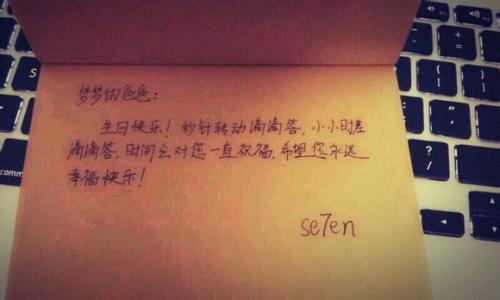 梦梦的色色：
生日快乐！秒针转动滴滴答，小小时差
滴滴答，时间会对您一直祝福，希望您永远
幸福快乐！
se7en